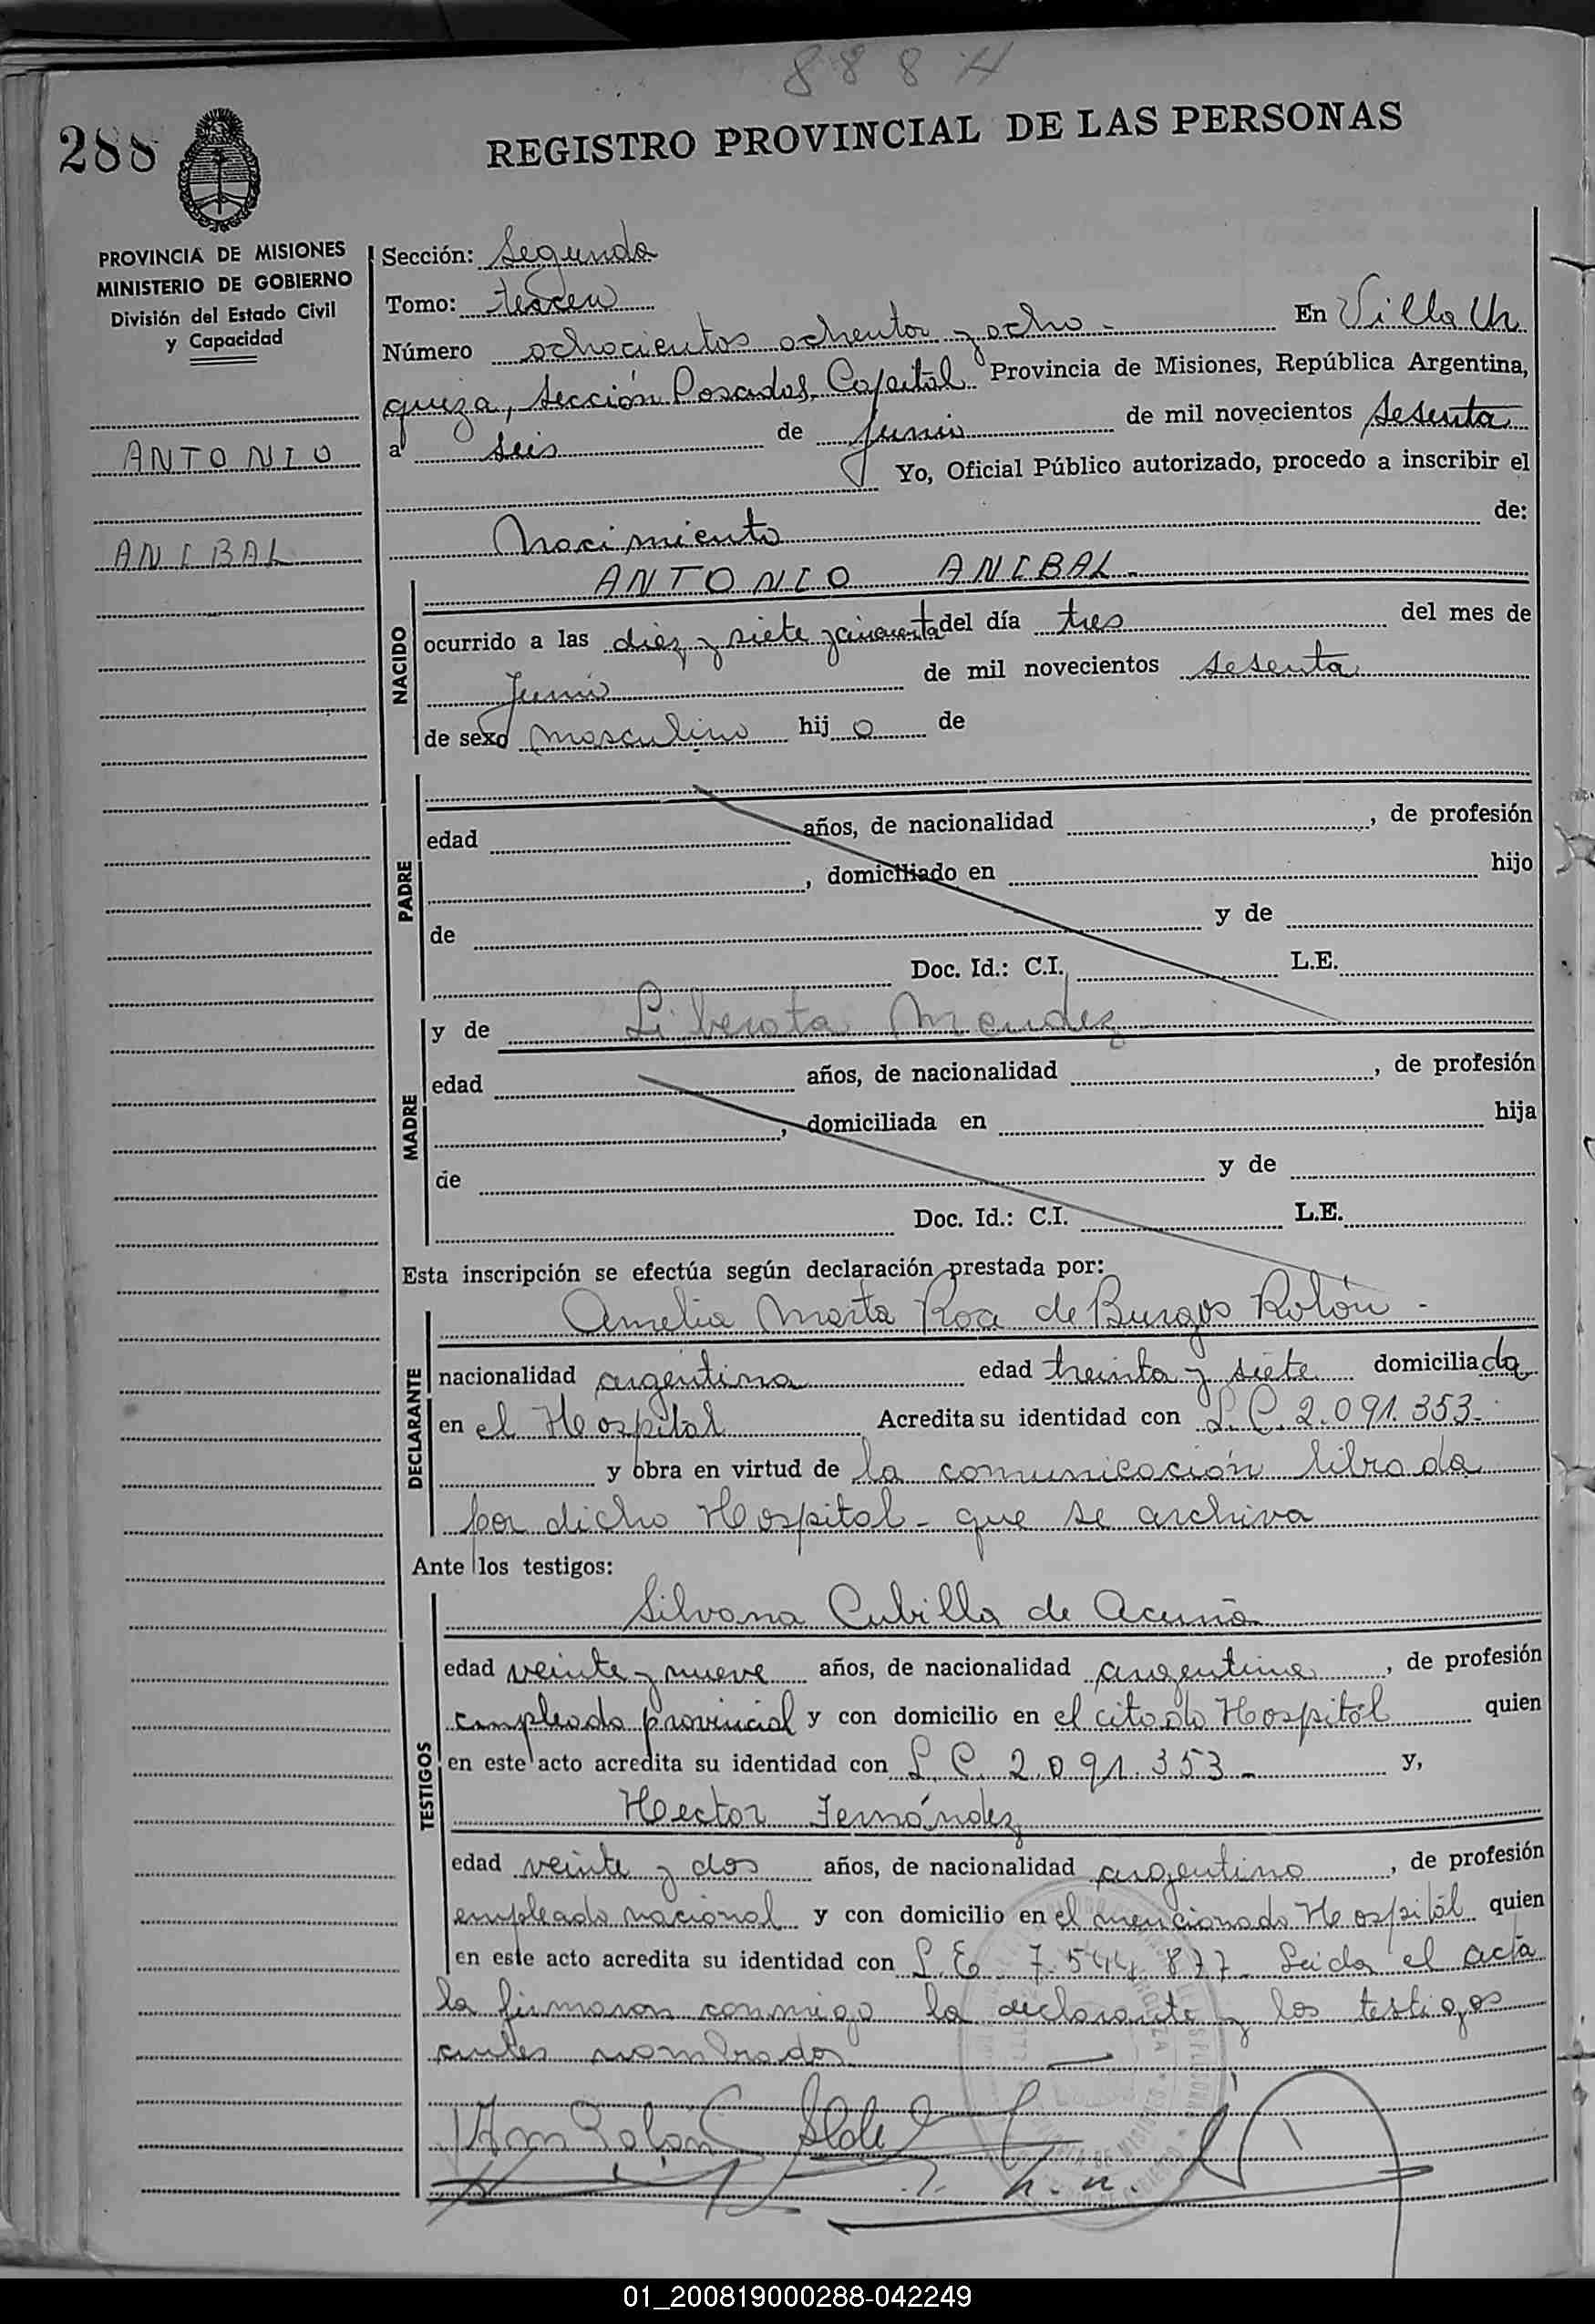 888 H
288
REGISTRO PROVINCIAL DE LAS PERSONAS
PROVINCIA DE MISIONES
MINISTERIO DE GOBIERNO
División del Estado Civil
y Capacidad
ANTONIO
ANIBAL
Sección: Segunda
Tomo: tercero
Número ochocientos ochenta y ocho - En Villa Ur
quiza, Sección Posadas, Capital Provincia de Misiones, República Argentina,
a seis de Junio de mil novecientos sesenta
Yo, Oficial Público autorizado, procedo a inscribir el
Nacimiento de:
NACIDO
ANTONIO ANIBAL -
ocurrido a las diez y siete y cincuenta del día tres del mes de
Junio de mil novecientos sesenta
de sexo masculino hijo de
PADRE
edad años, de nacionalidad , de profesión
, domiciliado en hijo
de y de
Doc. Id.: C.I. L.E.
MADRE
y de Liberata Mendez
edad años, de nacionalidad , de profesión
, domiciliada en hija
de y de
Doc. Id.: C.I. L.E.
Esta inscripción se efectúa según declaración prestada por:
DECLARANTE
Amelia Marta Roa de Burgos Rolón -
nacionalidad argentina edad treinta y siete domiciliada
en el Hospital Acredita su identidad con L.C. 2.091.353-
y obra en virtud de la comunicación librada
por dicho Hospital - que se archiva
Ante los testigos:
TESTIGOS
Silvana Cubilla de Acuña
edad veinte y nueve años, de nacionalidad argentina, de profesión
empleada provincial y con domicilio en el citado Hospital quien
en este acto acredita su identidad con L.C. 2.091.353- y,
Hector Fernández
edad veinte y dos años, de nacionalidad argentino, de profesión
empleado nacional y con domicilio en el mencionado Hospital quien
en este acto acredita su identidad con L.E. 7.544.877- Leida el acta
la firmaron conmigo la declarante y los testigos
antes nombrados
01_200819000288-042249